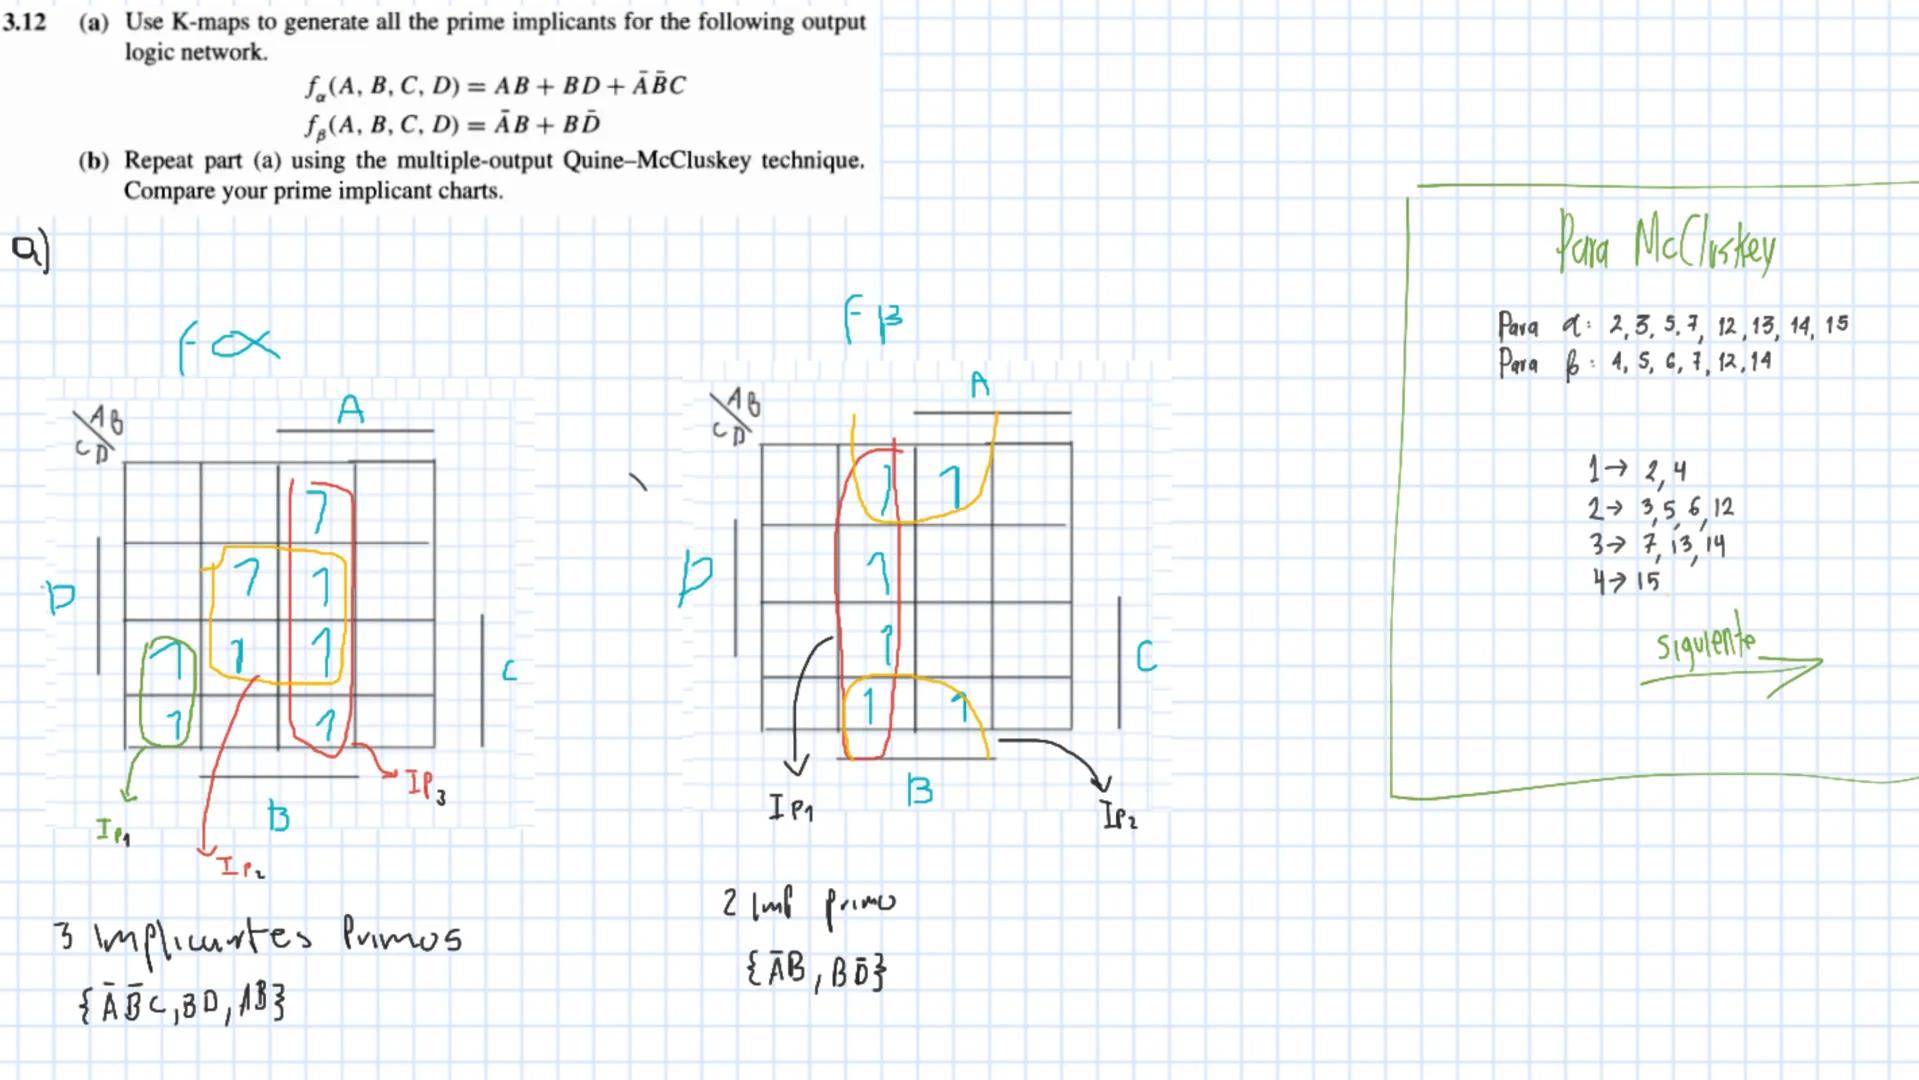 3.12 (a) Use K-maps to generate all the prime implicants for the following output
logic network.
f_α(A, B, C, D) = AB + BD + ĀB̄C
f_β(A, B, C, D) = ĀB + BD̄
(b) Repeat part (a) using the multiple-output Quine–McCluskey technique.
Compare your prime implicant charts.
a)
Para McCluskey
Para α: 2, 3, 5, 7, 12, 13, 14, 15
Para β: 4, 5, 6, 7, 12, 14
1→ 2, 4
2→ 3, 5, 6, 12
3→ 7, 13, 14
4→ 15
siguiente
Fα
AB
CD
A
1
D
1 1
1 1 1
C
1 1
B
IP1
IP2
IP3
3 Implicantes Primos
{ĀB̄C, BD, AB}
Fβ
AB
CD
A
1 1
D
1
1
C
1 1
B
IP1
IP2
2 Imp primo
{ĀB, BD̄}